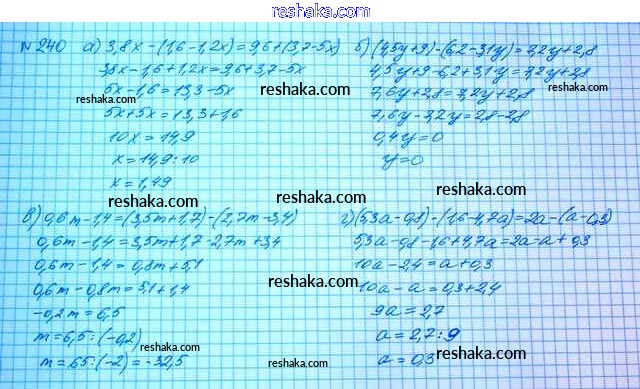 reshaka.com
№240 а) 3,8x-(1,6-1,2x)=9,6+(3,7-5x)
3,8x-1,6+1,2x=9,6+3,7-5x
5x-1,6=13,3-5x
5x+5x=13,3+1,6
10x=14,9
x=14,9:10
x=1,49
б) (4,5y+9)-(6,2-3,1y)=7,2y+2,8
4,5y+9-6,2+3,1y=7,2y+2,8
7,6y+2,8=7,2y+2,8
7,6y-7,2y=2,8-2,8
0,4y=0
y=0
в) 0,6m-1,4=(3,5m+1,7)-(2,7m-3,4)
0,6m-1,4=3,5m+1,7-2,7m+3,4
0,6m-1,4=0,8m+5,1
0,6m-0,8m=5,1+1,4
-0,2m=6,5
m=6,5:(-0,2)
m=65:(-2)=-32,5
г) (5,3a-0,8)-(1,6-4,7a)=2a-(a-0,3)
5,3a-0,8-1,6+4,7a=2a-a+0,3
10a-2,4=a+0,3
10a-a=0,3+2,4
9a=2,7
a=2,7:9
a=0,3
reshaka.com
reshaka.com
reshaka.com
reshaka.com
reshaka.com
reshaka.com
reshaka.com
reshaka.com
reshaka.com
reshaka.com